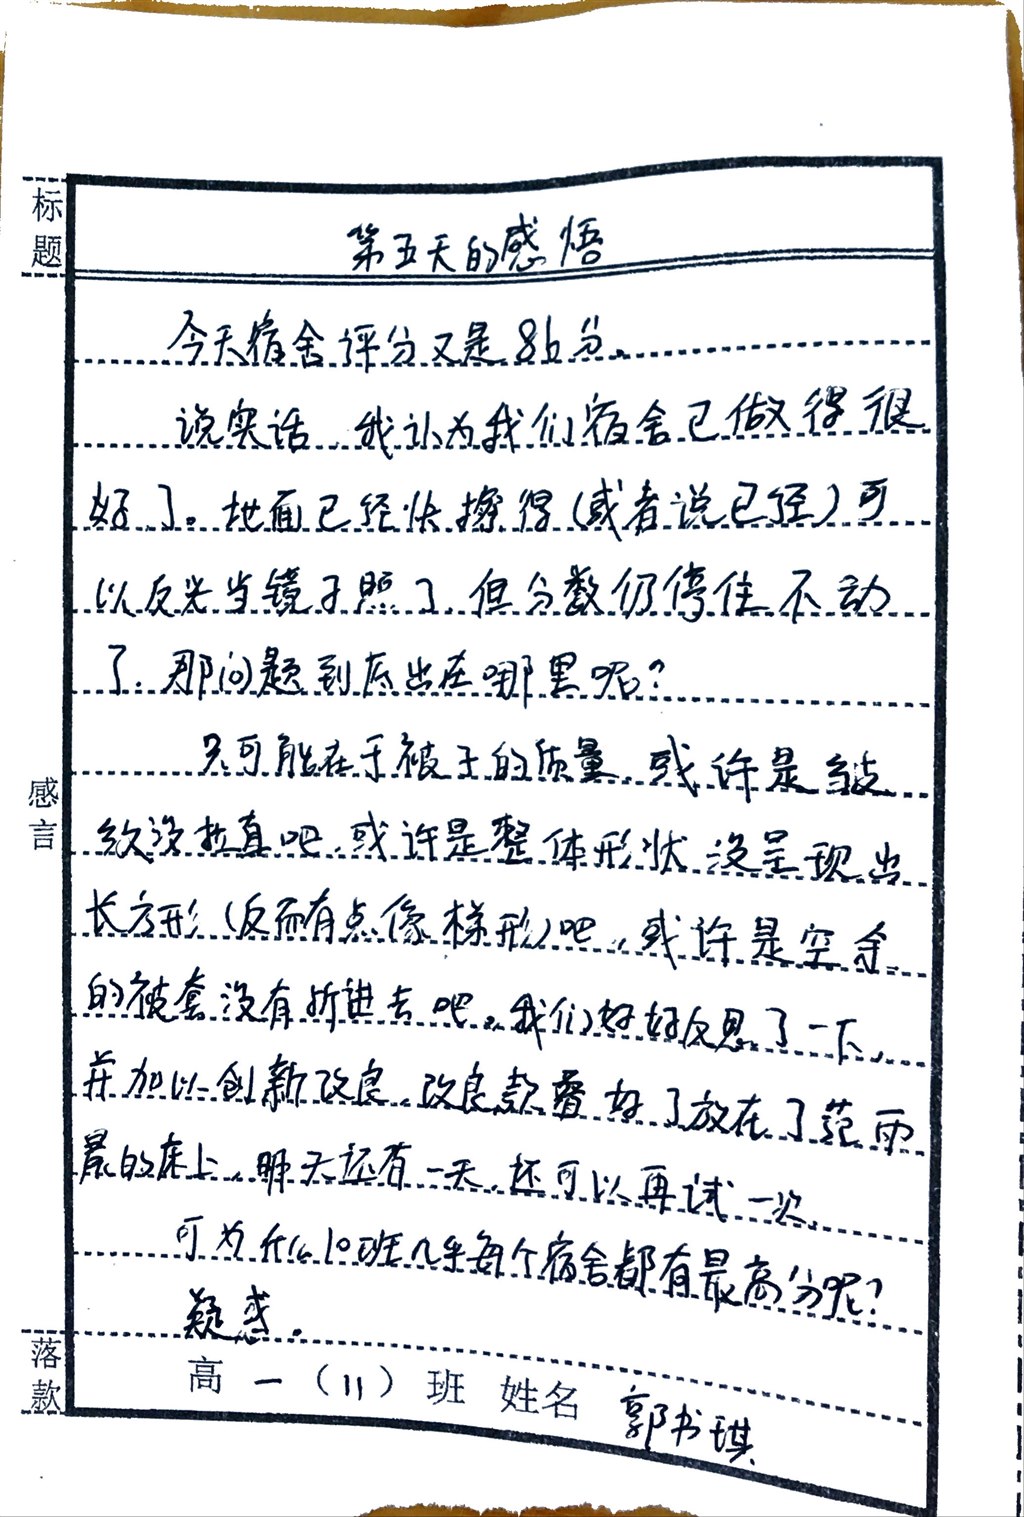 标题
第五天的感悟
今天宿舍评分又是86分。
说实话,我认为我们宿舍已做得很
好了。地面已经快擦得(或者说已经)可
以反光当镜子照了,但分数仍停住不动
了。那问题到底出在哪里呢?
只可能在于被子的质量,或许是皱
纹没拉直吧,或许是整体形状没呈现出
长方形(反而有点像梯形)吧,或许是空余
的被套没有折进去吧。我们好好反思了一下,
并加以创新改良,改良款叠好了放在了范雨
晨的床上,明天还有一天,还可以再试一次。
可为什么10班几乎每个宿舍都有最高分呢?
疑惑。
感言
落款
高一(11)班 姓名 郭书琪